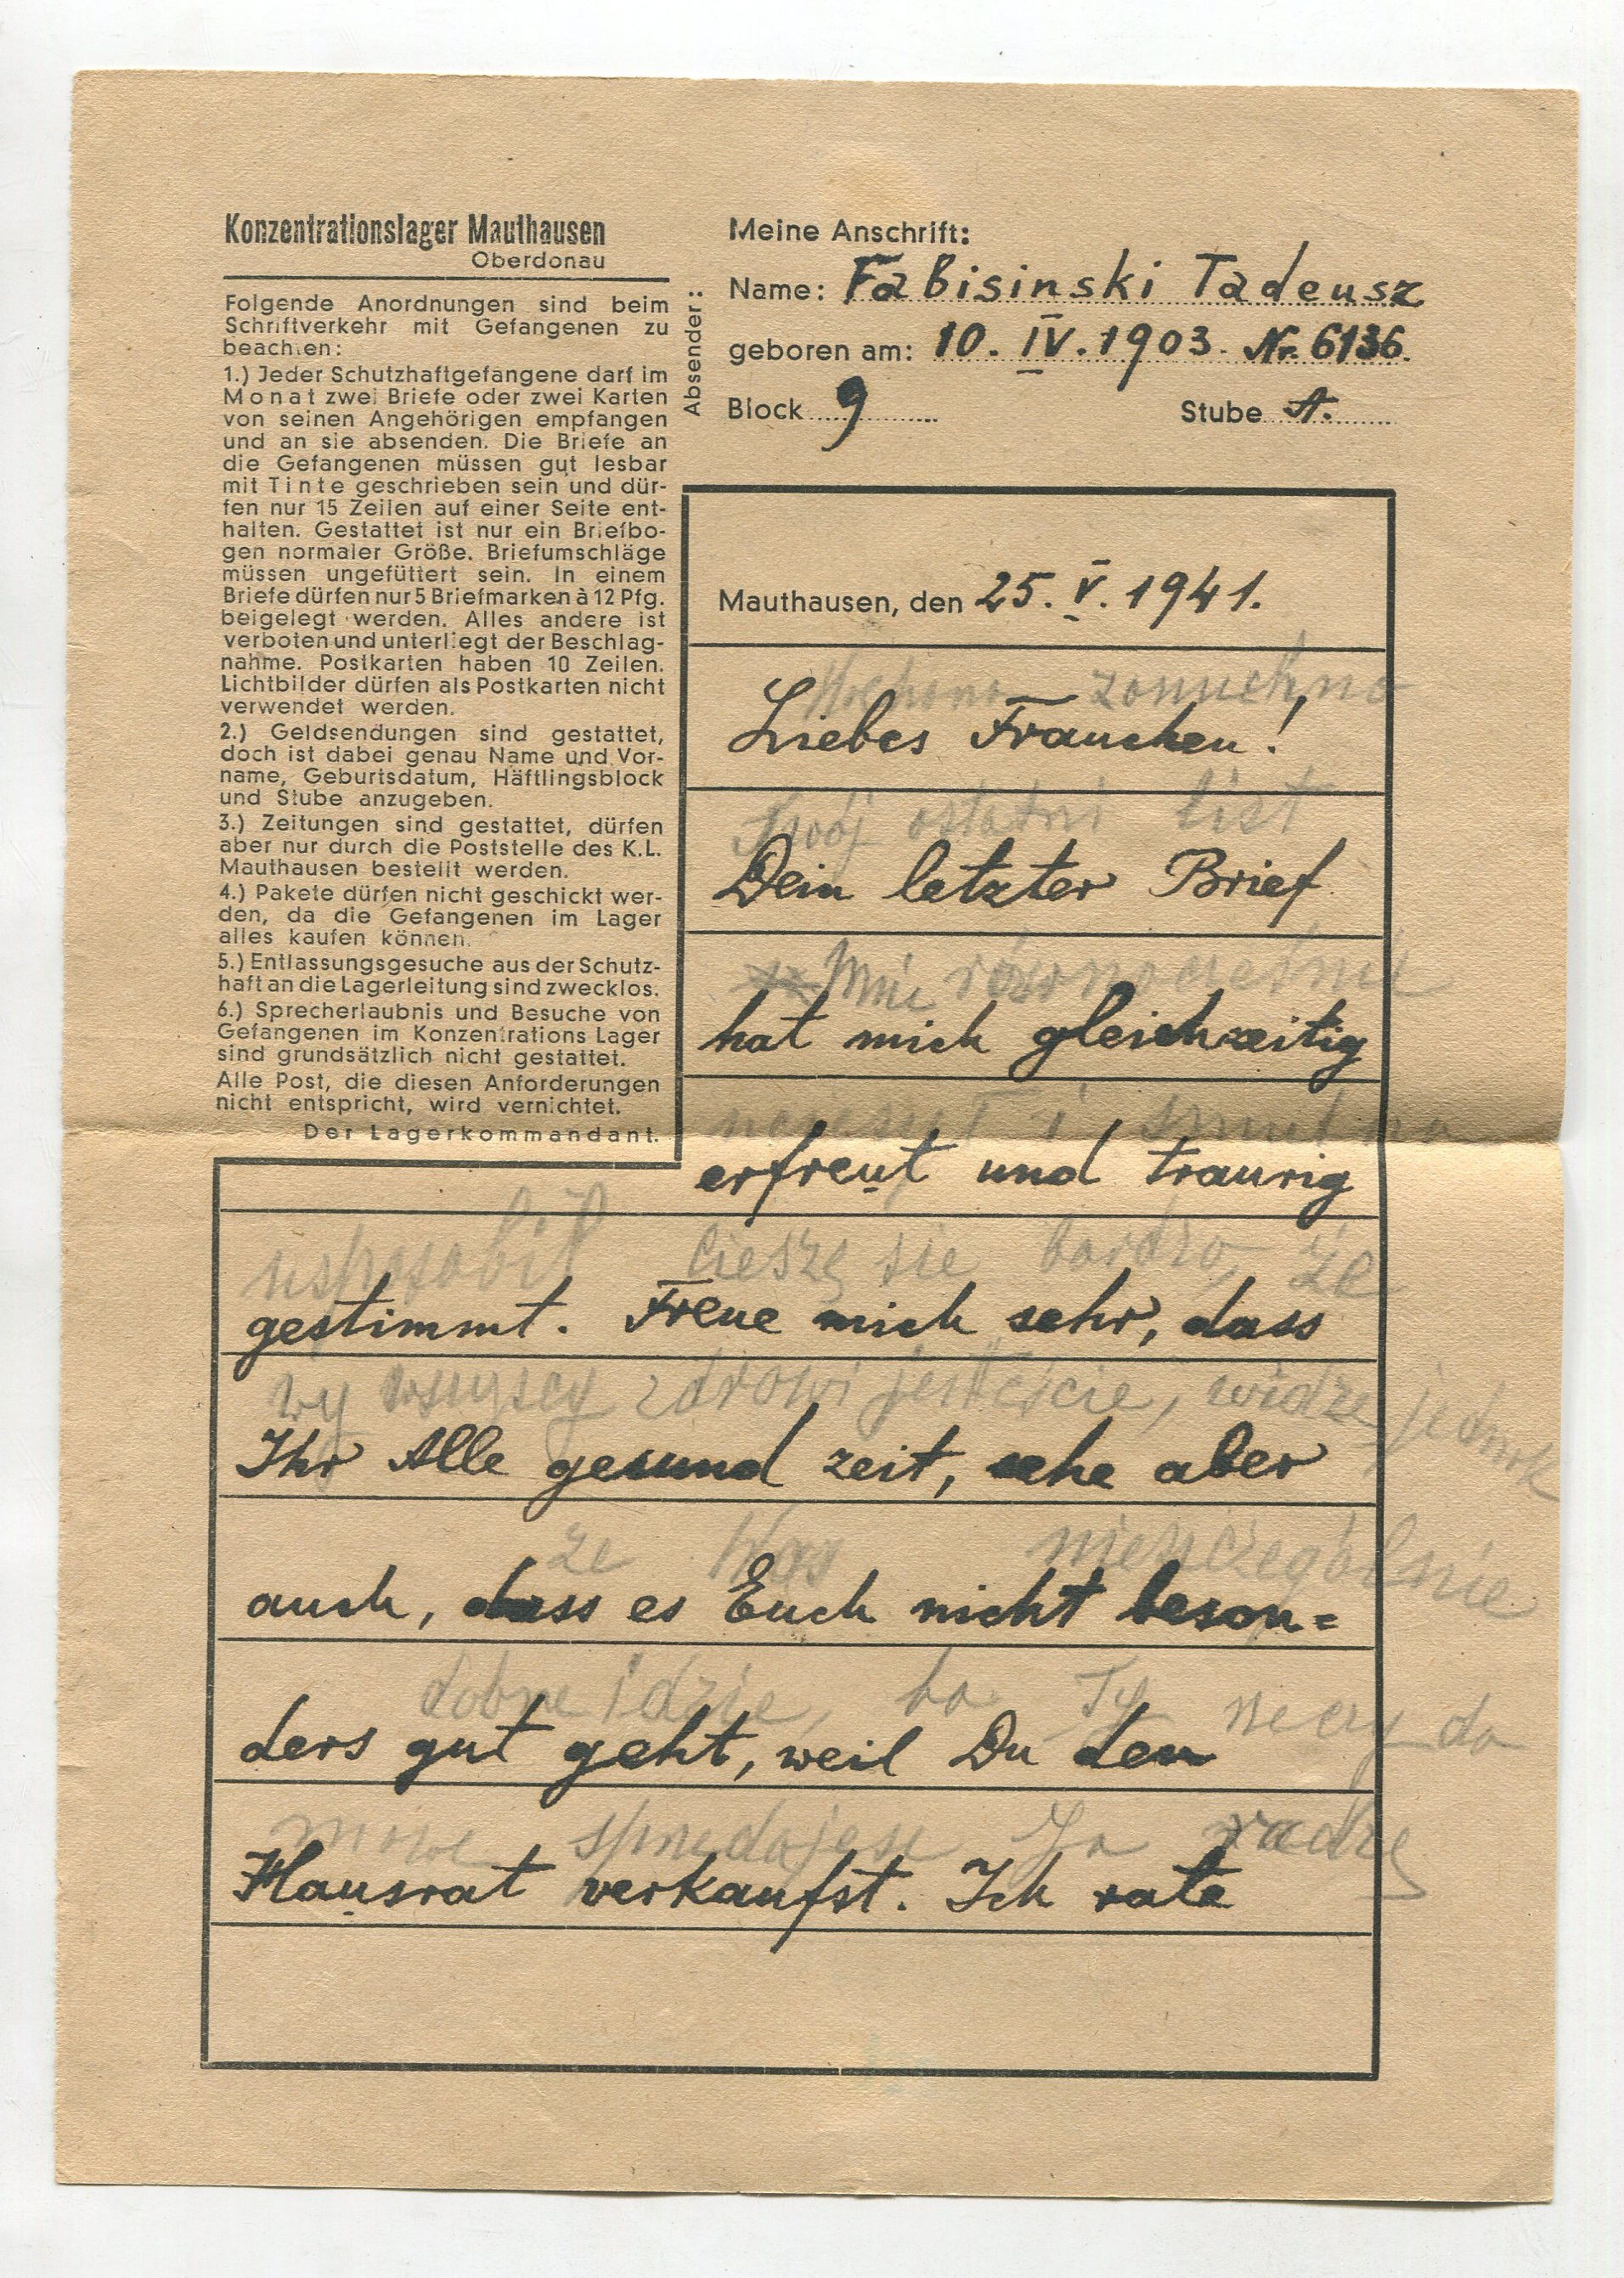 Konzentrationslager Mauthausen
Oberdonau
Folgende Anordnungen sind beim
Schriftverkehr mit Gefangenen zu
beachten:
1.) Jeder Schutzhaftgefangene darf im
Monat zwei Briefe oder zwei Karten
von seinen Angehörigen empfangen
und an sie absenden. Die Briefe an
die Gefangenen müssen gut lesbar
mit Tinte geschrieben sein und dür-
fen nur 15 Zeilen auf einer Seite ent-
halten. Gestattet ist nur ein Briefbo-
gen normaler Größe. Briefumschläge
müssen ungefüttert sein. In einem
Briefe dürfen nur 5 Briefmarken à 12 Pfg.
beigelegt werden. Alles andere ist
verboten und unterliegt der Beschlag-
nahme. Postkarten haben 10 Zeilen.
Lichtbilder dürfen als Postkarten nicht
verwendet werden.
2.) Geldsendungen sind gestattet,
doch ist dabei genau Name und Vor-
name, Geburtsdatum, Häftlingsblock
und Stube anzugeben.
3.) Zeitungen sind gestattet, dürfen
aber nur durch die Poststelle des K.L.
Mauthausen bestellt werden.
4.) Pakete dürfen nicht geschickt wer-
den, da die Gefangenen im Lager
alles kaufen können.
5.) Entlassungsgesuche aus der Schutz-
haft an die Lagerleitung sind zwecklos.
6.) Sprecherlaubnis und Besuche von
Gefangenen im Konzentrations Lager
sind grundsätzlich nicht gestattet.
Alle Post, die diesen Anforderungen
nicht entspricht, wird vernichtet.
Der Lagerkommandant.
Absender:
Meine Anschrift:
Name: Fabisinski Tadeusz
geboren am: 10. IV. 1903. Nr. 6136.
Block 9 Stube A.
Mauthausen, den 25. V. 1941.
Liebes Frauchen!
Twój ostatni list
Dein letzter Brief
Mnie równocześnie
hat mich gleichzeitig
i smutno
erfreut und traurig
usposobił cieszę się bardzo, że
gestimmt. Freue mich sehr, dass
wy wszyscy zdrowi jesteście, widzę jednak
Ihr Alle gesund zeit, sehe aber
że Was nieszczególnie
auch, dass es Euch nicht beson=
dobrze idzie, bo Ty rzeczy do
ders gut geht, weil Du den
mowe sprzedajesz Ja radzę
Hausrat verkaufst. Ich rate